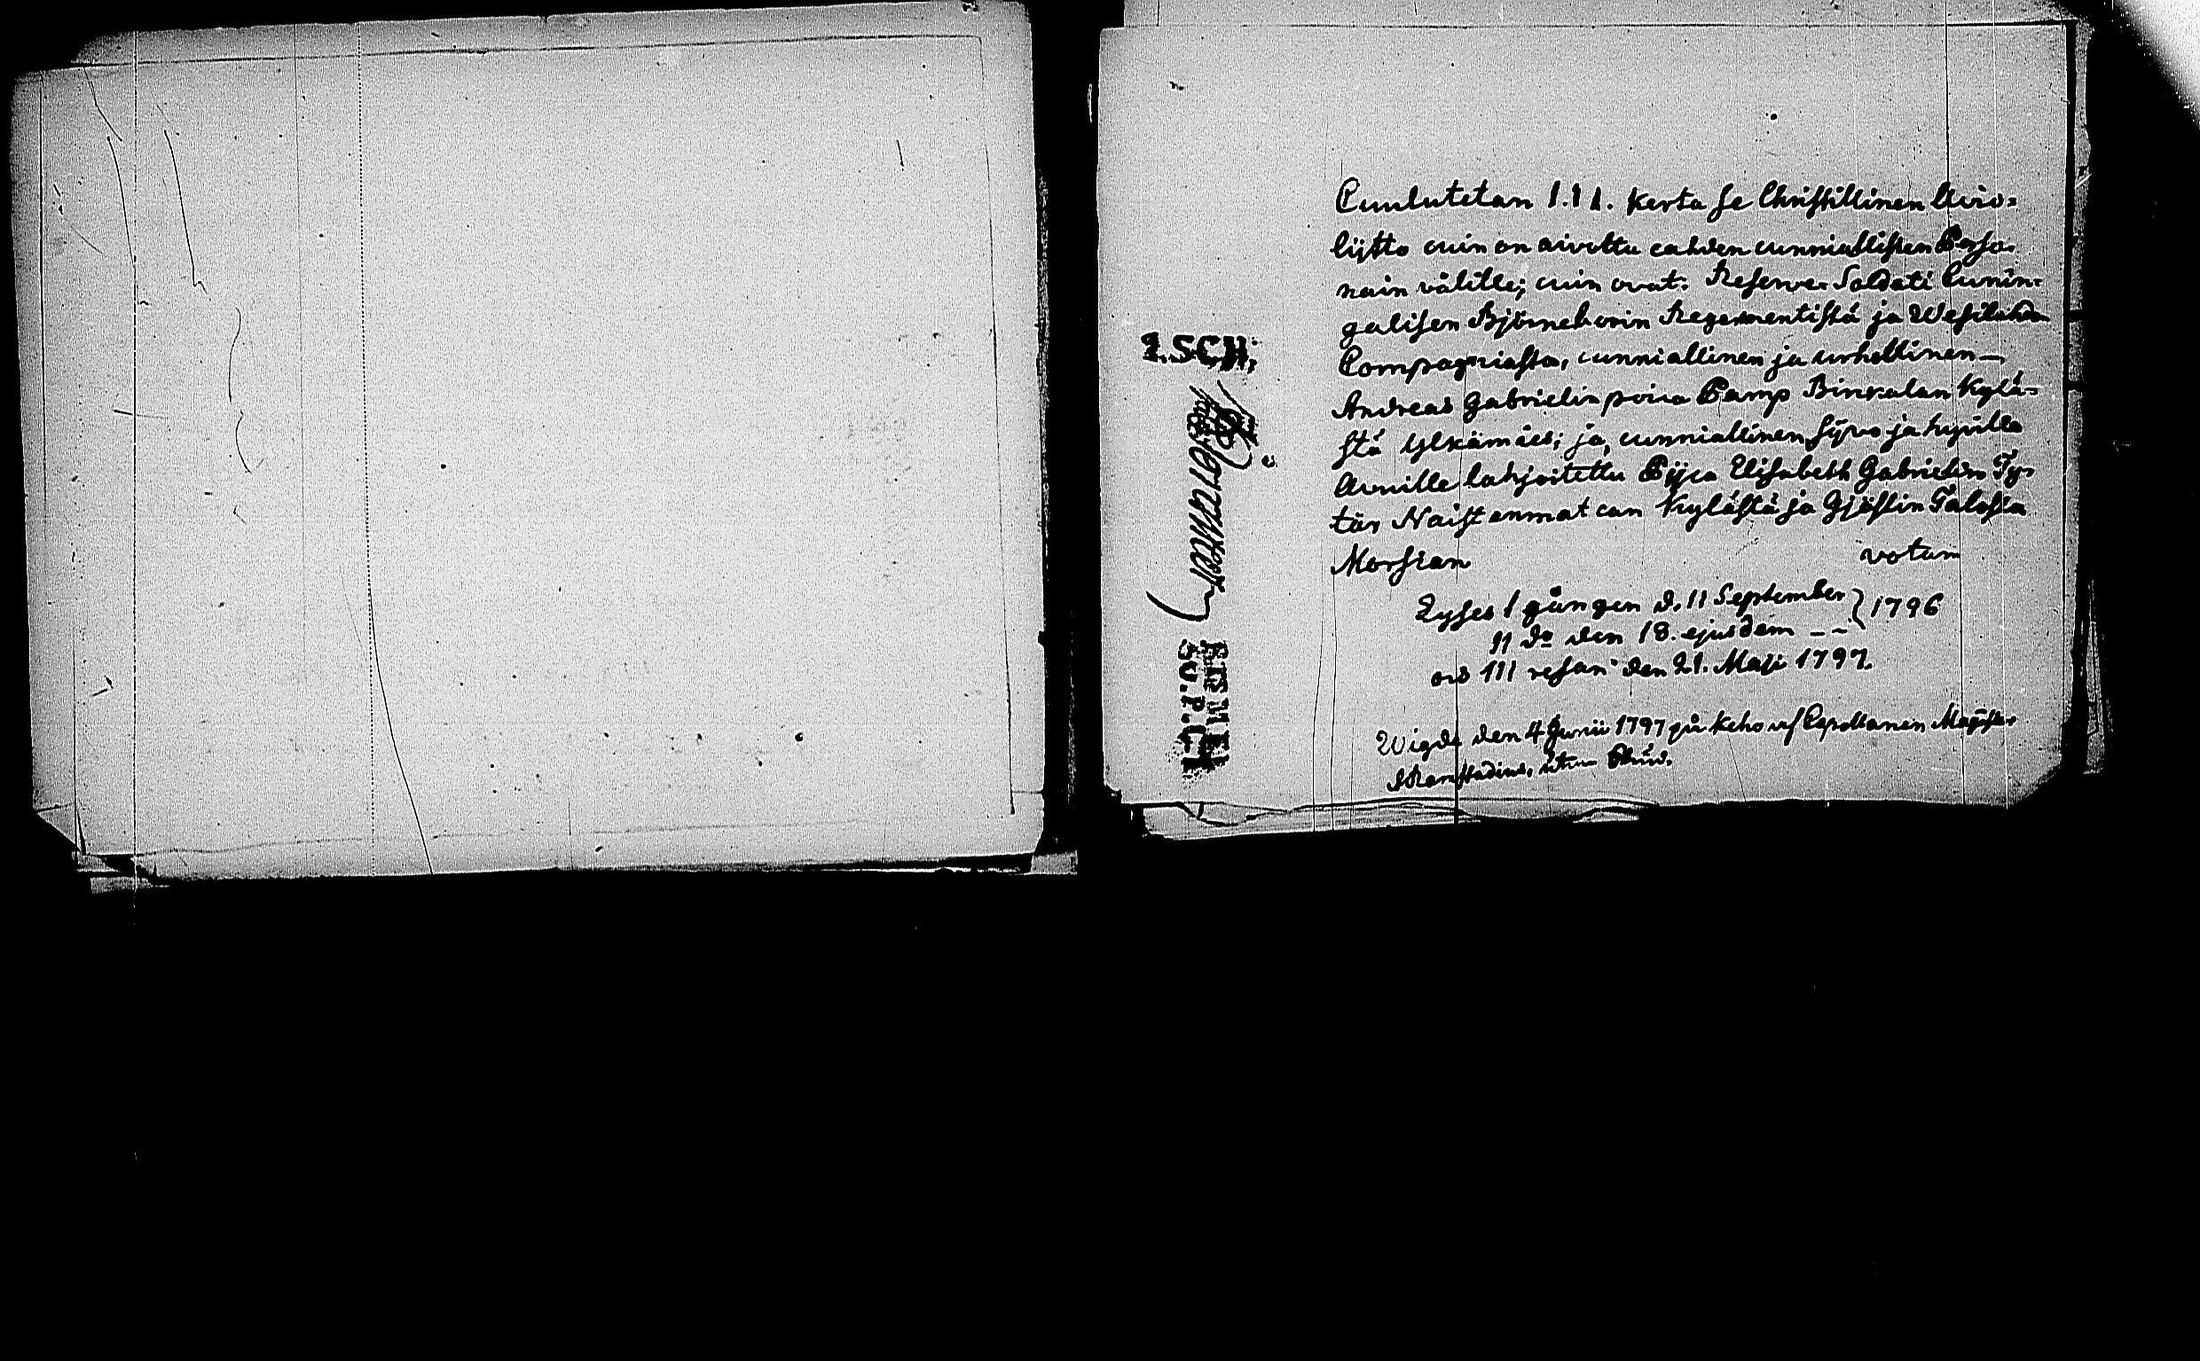 Cuulutetan I. I I. Kerta se Christillinen Avio=
lijtto cuin on aivottu cahden cunniallisen Perso-
nain välille; cuin ovat: Reserve-Soldati Cunin=
galisen Björneborin Regementistä ja Wesilahden
Compagniasta, cunniallinen ja urhollinen —
Andreas Gabrielin poica Pamp Kylä=
stä ja, cunniallinen syvo ja hyvillä
Avuille lahjoitettu Pijca Elisabeth Gabrielin Ty=
tär Naistenmatcan Kylästä ja Talosta
Morsian votum
Lyses I gången d. 11 September } 1796
II do den 18. ejusdem — ~
och III resan den 21. Maji 1797.
Wigde den 4 Junii 1797 på Keho af Capellanen Magister
1.SCH;